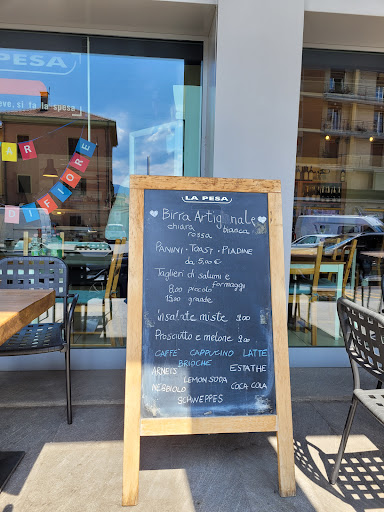 PESA
eve, si fa la spesa
DI FIORE
LA PESA
Birra Artigianale
chiara
rossa bianca
PANINI · TOAST · PIADINE
da 5,00 €
Taglieri di salumi e
formaggi
8,00 piccolo
15,00 grande
insalate miste 9,00
Prosciutto e melone 9,00
CAFFE' CAPPUCINO LATTE
BRIOCHE
ARNEIS ESTATHE
LEMON SODA
NEBBIOLO COCA COLA
SCHWEPPES